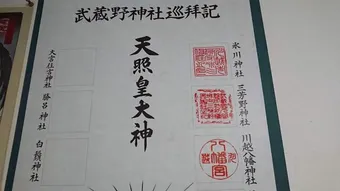 武蔵野神社巡拝記
氷川神社
三芳野神社
川越八幡神社
天照皇大神
大宮住吉神社
勝呂神社
白鬚神社
八幡宮